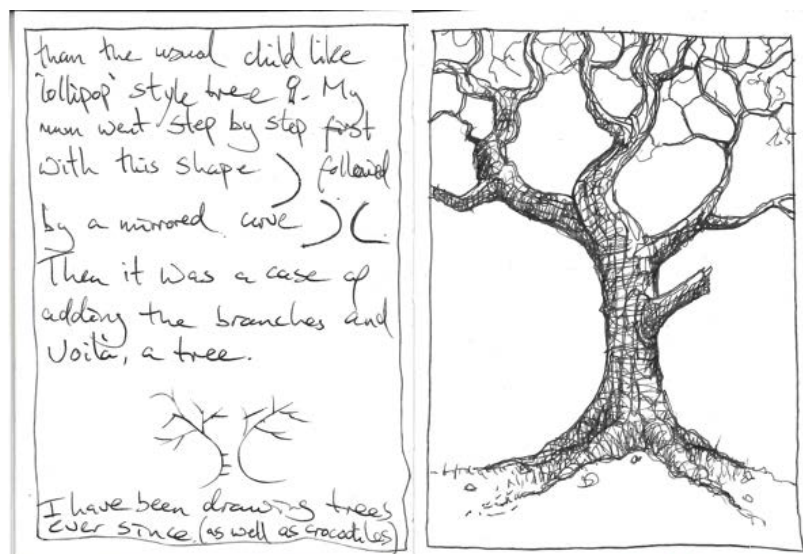 than the usual child like
'lollipop' style tree. My
mum went step by step first
with this shape followed
by a mirrored curve
Then it was a case of
adding the branches and
Voilà, a tree.
I have been drawing trees
ever since (as well as crocodiles)